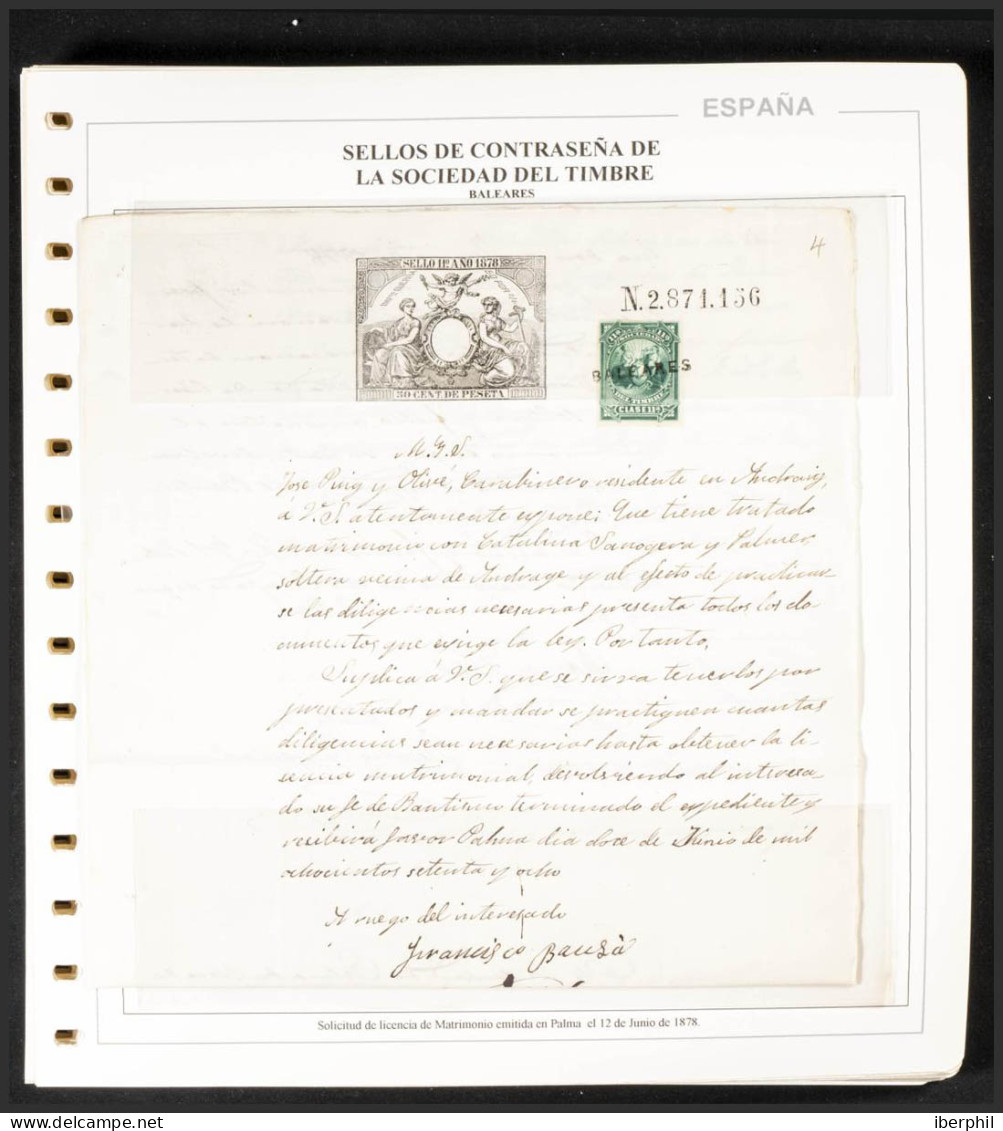 ESPAÑA
SELLOS DE CONTRASEÑA DE
LA SOCIEDAD DEL TIMBRE
BALEARES
4
SELLO 11º AÑO 1878
50 CENT. DE PESETA
N.2.871.156
11º 11º
SOCIEDAD
BALEARES
DEL TIMBRE
CLASE 11ª
M. Y. S.
Jose Puig y Olivé, Carabinero residente en Andraig,
a V. S. atentamente expone; Que tiene tratado
matrimonio con Catalina y Palmer,
soltera vecina de Andrage y al efecto de practicar
se las diligencias necesarias presenta todos los do-
cumentos que exige la ley. Por tanto,
Suplica á V. S. que se sirva tenerlos por
presentados y mandar se practiquen cuantas
diligencias sean necesarias hasta obtener la li-
sencia matrimonial, devolviendo al interesa-
do su fe de Bautismo terminado el expediente y
recibirá favor Palma dia doce de Junio de mil
ochocientos setenta y ocho
A ruego del interesado
Francisco Bauzà
Solicitud de licencia de Matrimonio emitida en Palma el 12 de Junio de 1878.
delcampe.net
iberphil